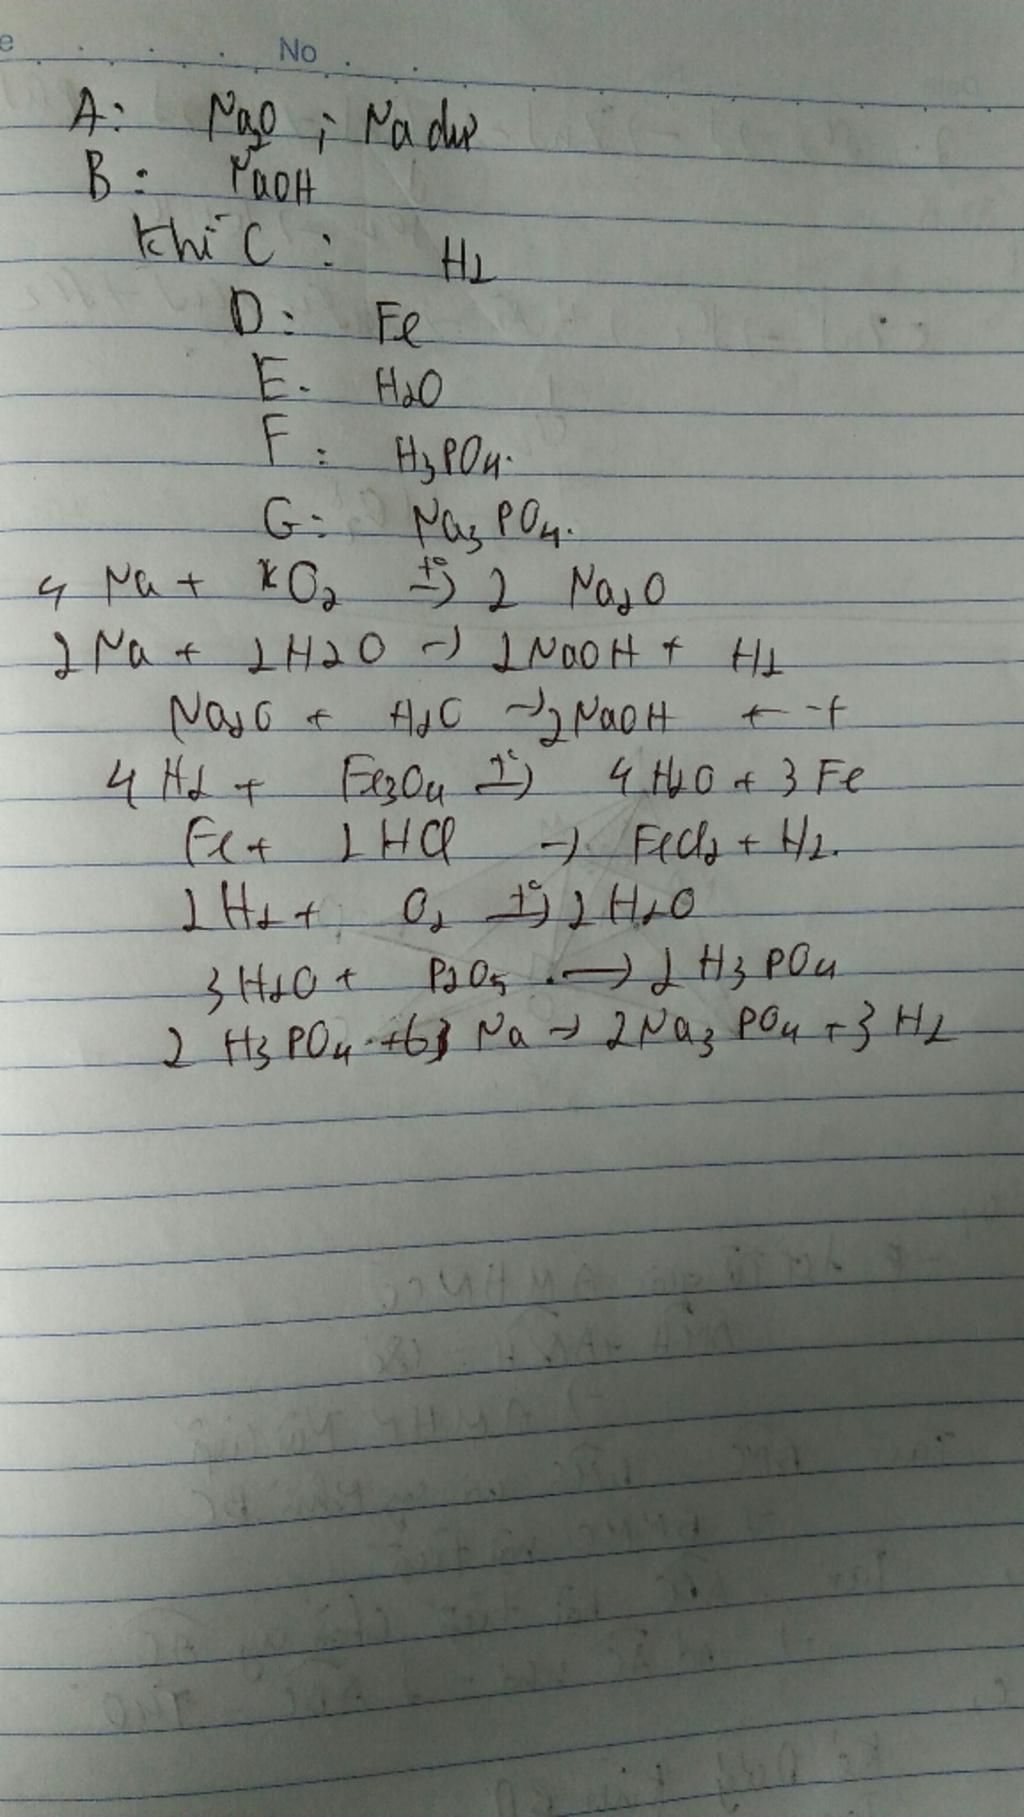 No
A: Na2O ; Na dư
B: NaOH
Khí C : H2
D: Fe
E. H2O
F: H3PO4.
G: Na3PO4.
4 Na + O2 t°→ 2 Na2O
2Na + 2H2O → 2NaOH + H2
Na2O + H2O → 2NaOH
4 H2 + Fe3O4 t°→ 4 H2O + 3 Fe
Fe + 2HCl → FeCl2 + H2.
2H2 + O2 t°→ 2H2O
3H2O + P2O5 → 2 H3PO4
2 H3PO4 + 6 Na → 2Na3PO4 + 3 H2